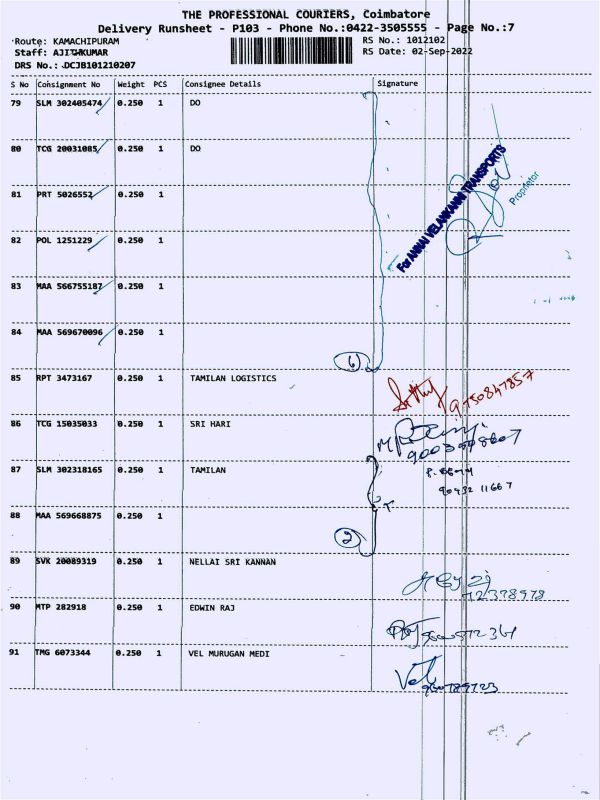 THE PROFESSIONAL COURIERS, Coimbatore
Delivery Runsheet - P103 - Phone No.:0422-3505555 - Page No.:7
Route: KAMACHIPURAM
RS No.: 1012102
Staff: AJITHKUMAR
RS Date: 02-Sep-2022
DRS No.: DCJB101210207
S No Consignment No Weight PCS Consignee Details Signature
79 SLM 302405474 0.250 1 DO
80 TCG 20031085 0.250 1 DO
81 PRT 5026552 0.250 1
82 POL 1251229 0.250 1
83 MAA 566755187 0.250 1
84 MAA 569670096 0.250 1
For ANNAI VELANKANNI TRANSPORTS
Proprietor
6
85 RPT 3473167 0.250 1 TAMILAN LOGISTICS
9750847857
86 TCG 15035033 0.250 1 SRI HARI
87 SLM 302318165 0.250 1 TAMILAN
90432 11667
88 MAA 569668875 0.250 1
2
89 SVK 20089319 0.250 1 NELLAI SRI KANNAN
90 MTP 282918 0.250 1 EDWIN RAJ
91 TMG 6073344 0.250 1 VEL MURUGAN MEDI
Vel